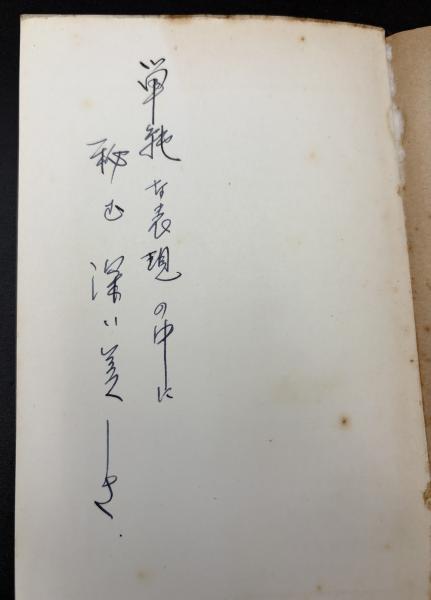 単純な表現の中に
秘む深い美しさ.